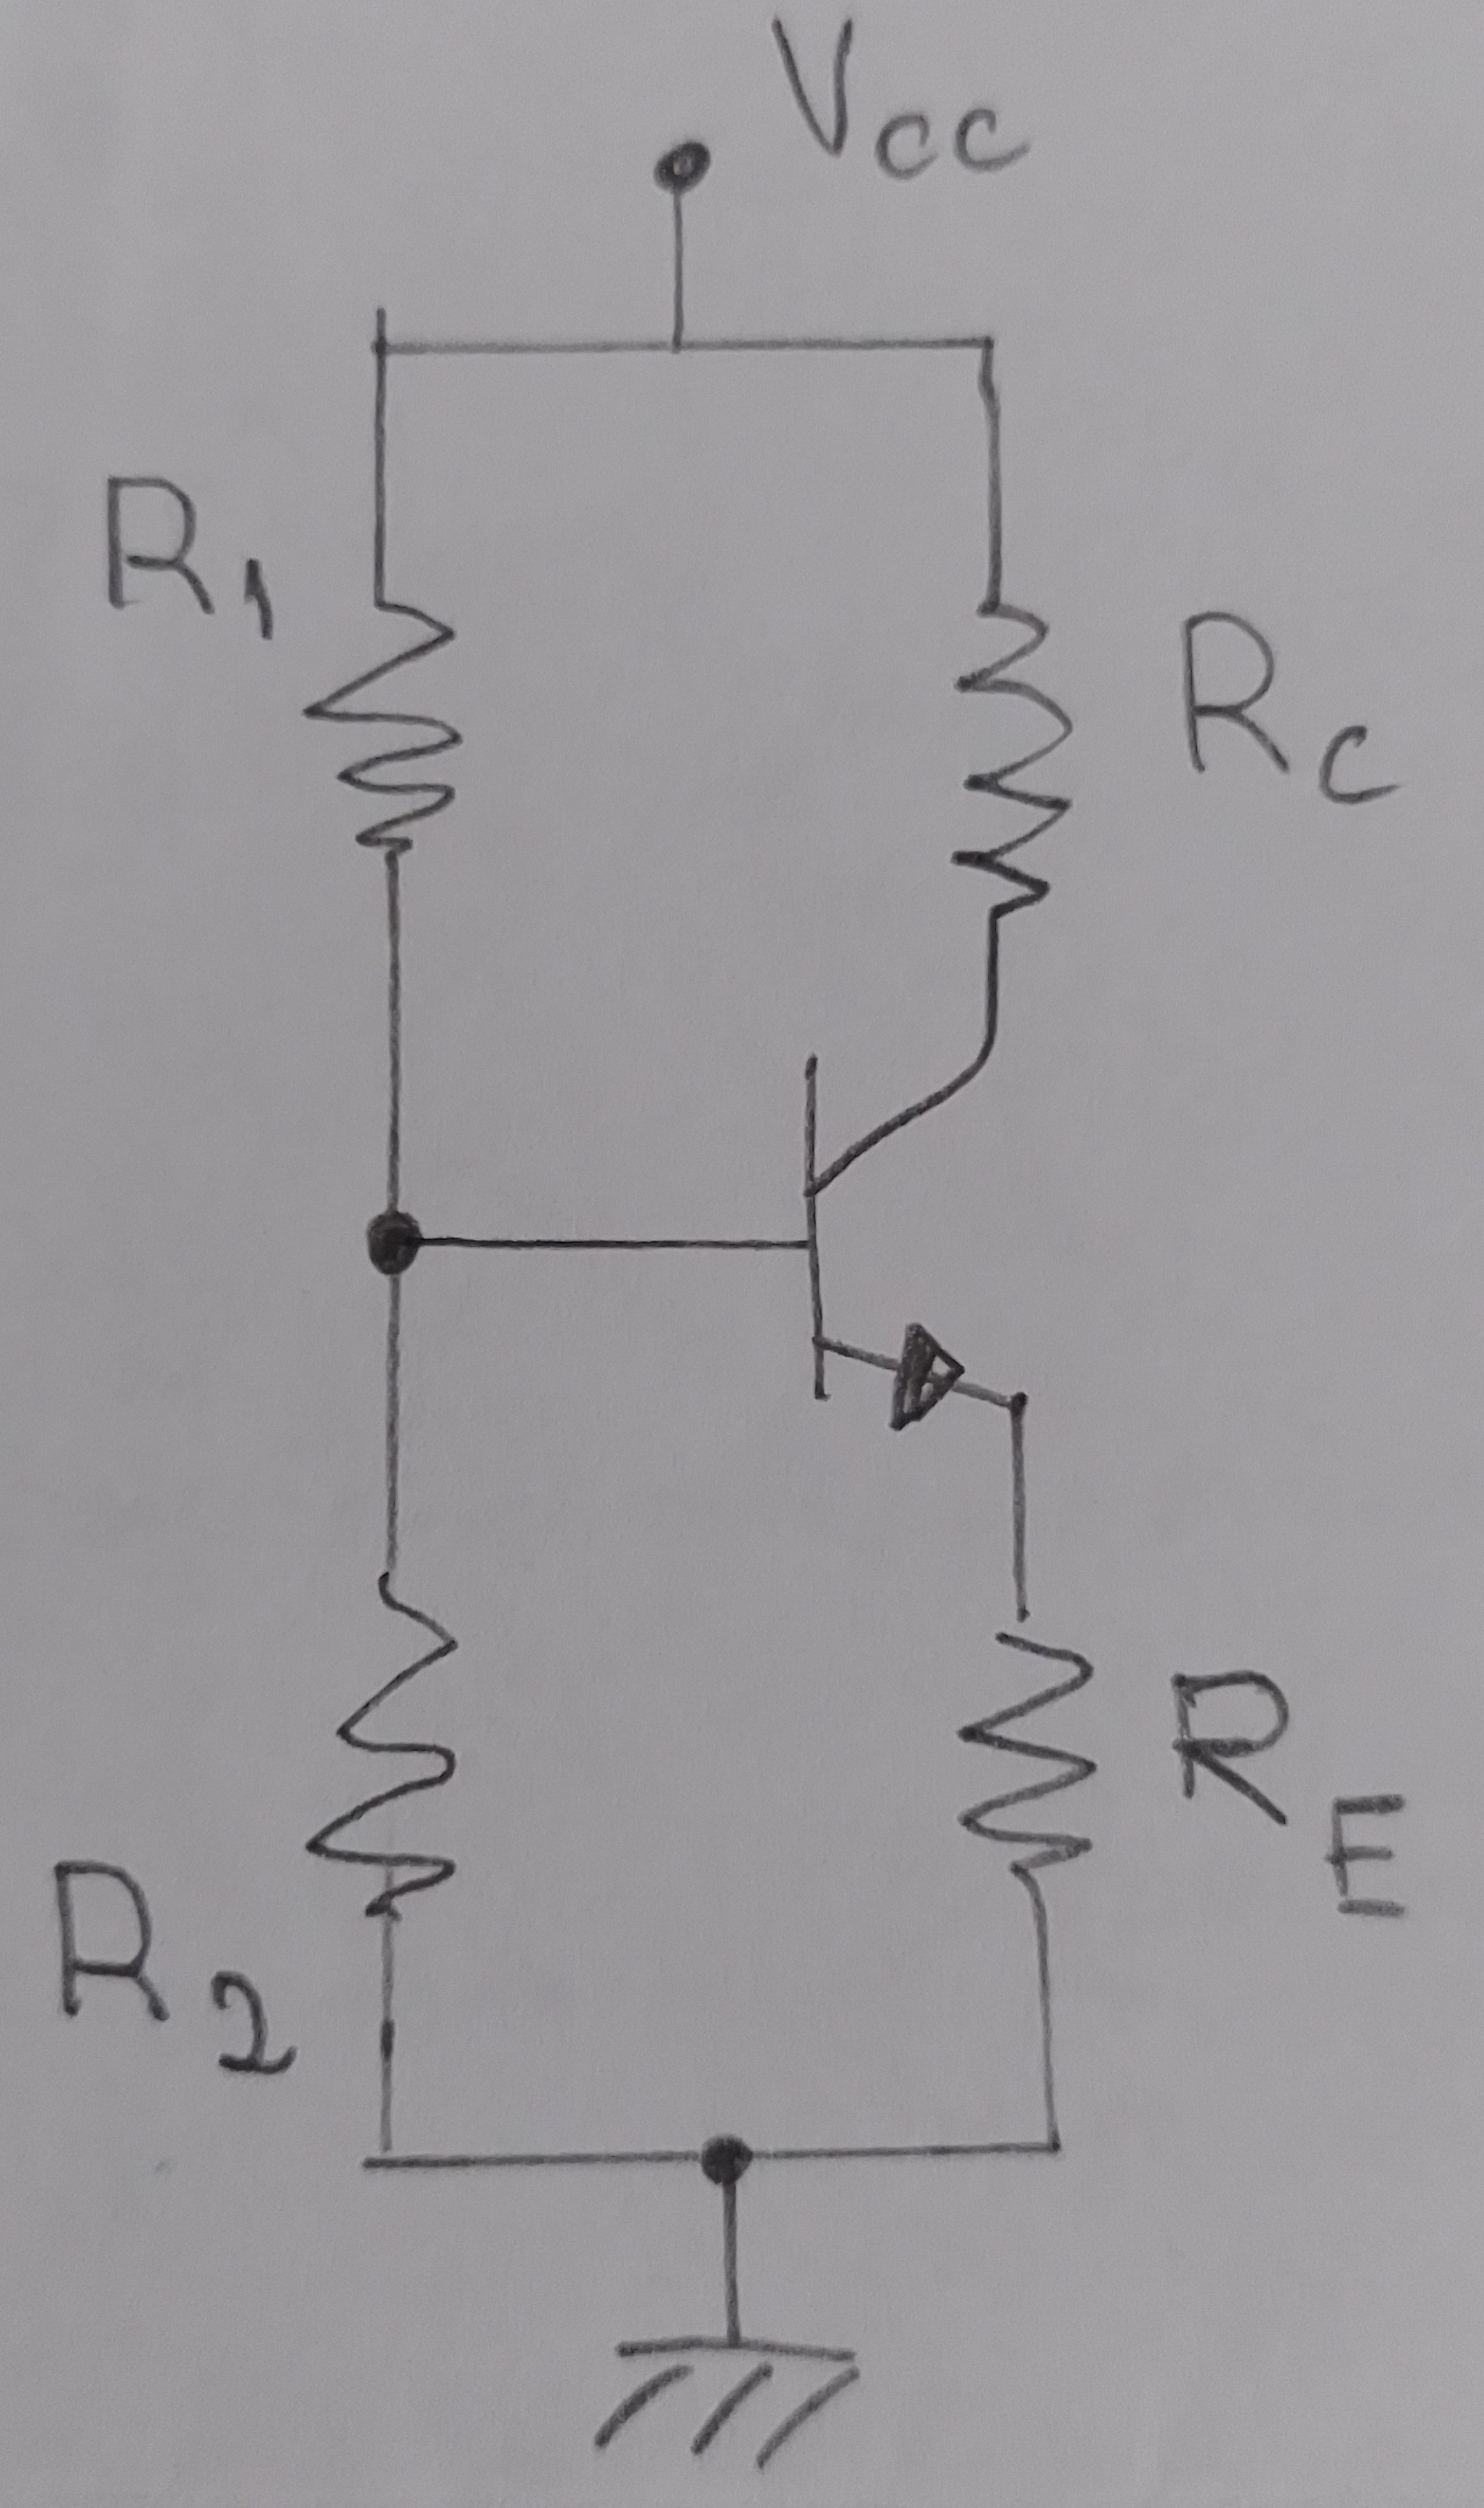 Vcc
R1
RC
RE
R2